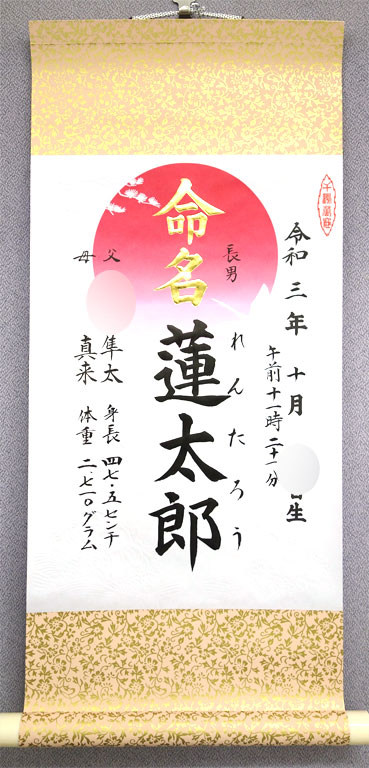 令和三年十月
生
午前十一時二十一分
長男
命名
れんたろう
蓮太郎
父
隼太
母
真来
身長 四七・五センチ
体重 二、七一〇グラム